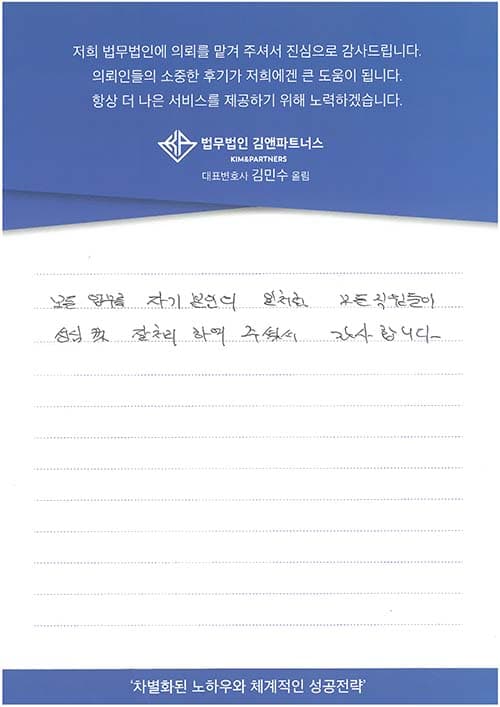 저희 법무법인에 의뢰를 맡겨 주셔서 진심으로 감사드립니다.
의뢰인들의 소중한 후기가 저희에겐 큰 도움이 됩니다.
항상 더 나은 서비스를 제공하기 위해 노력하겠습니다.
법무법인 김앤파트너스
KIM&PARTNERS
대표변호사 김민수 올림
모든 업무를 자기 본인의 일처럼 모든 직원들이
성심 잘처리 하여 주셔서 감사합니다-
'차별화된 노하우와 체계적인 성공전략'